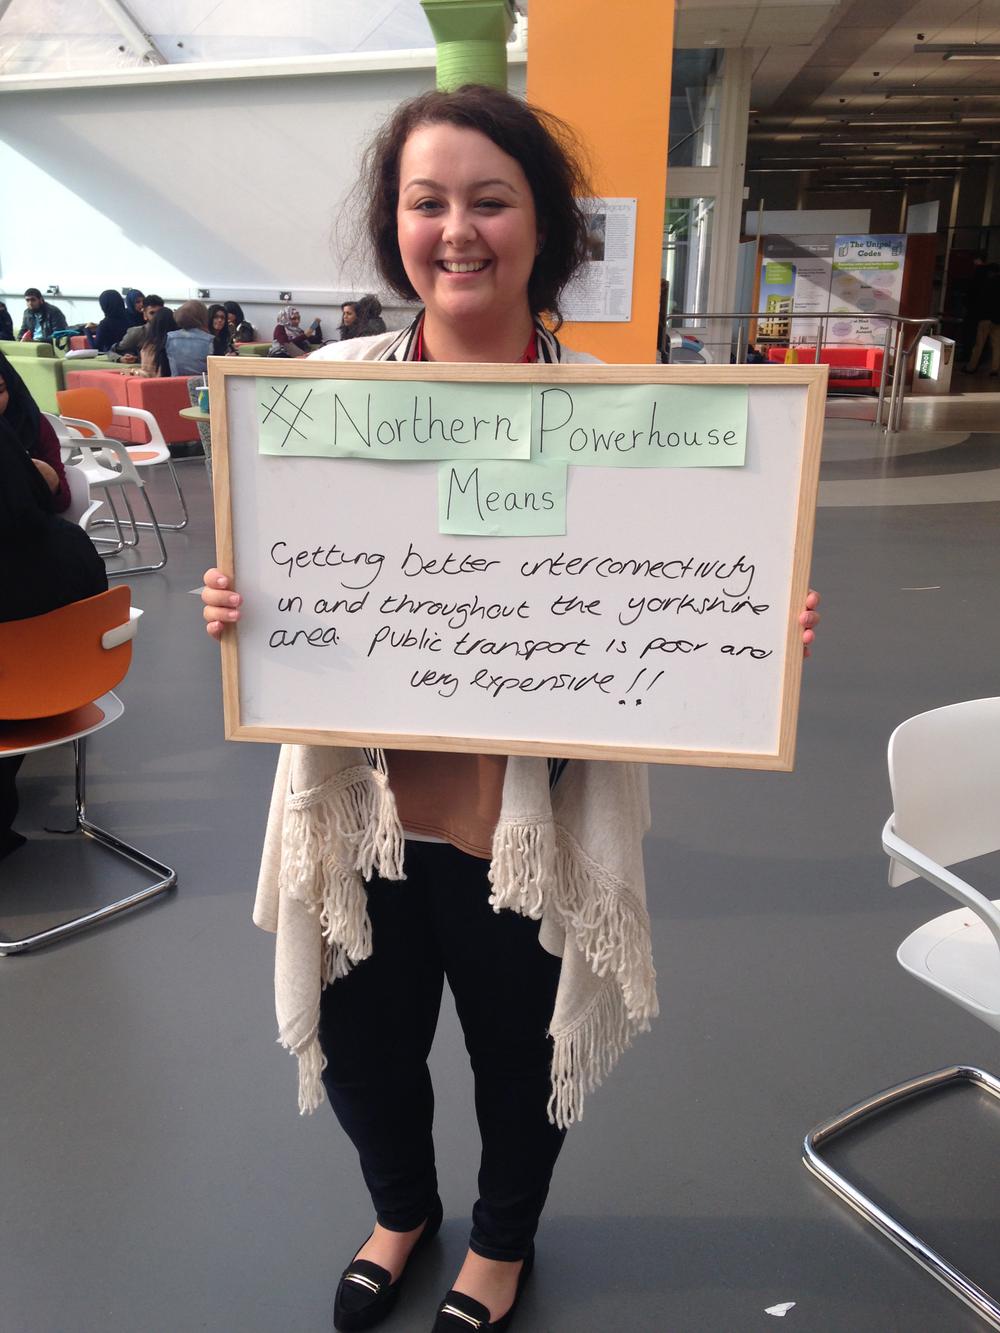 # Northern Powerhouse
Means
Getting better interconnectivity
in and throughout the yorkshire
area. Public transport is poor and
very expensive!!
The Unipol
Codes
unipol